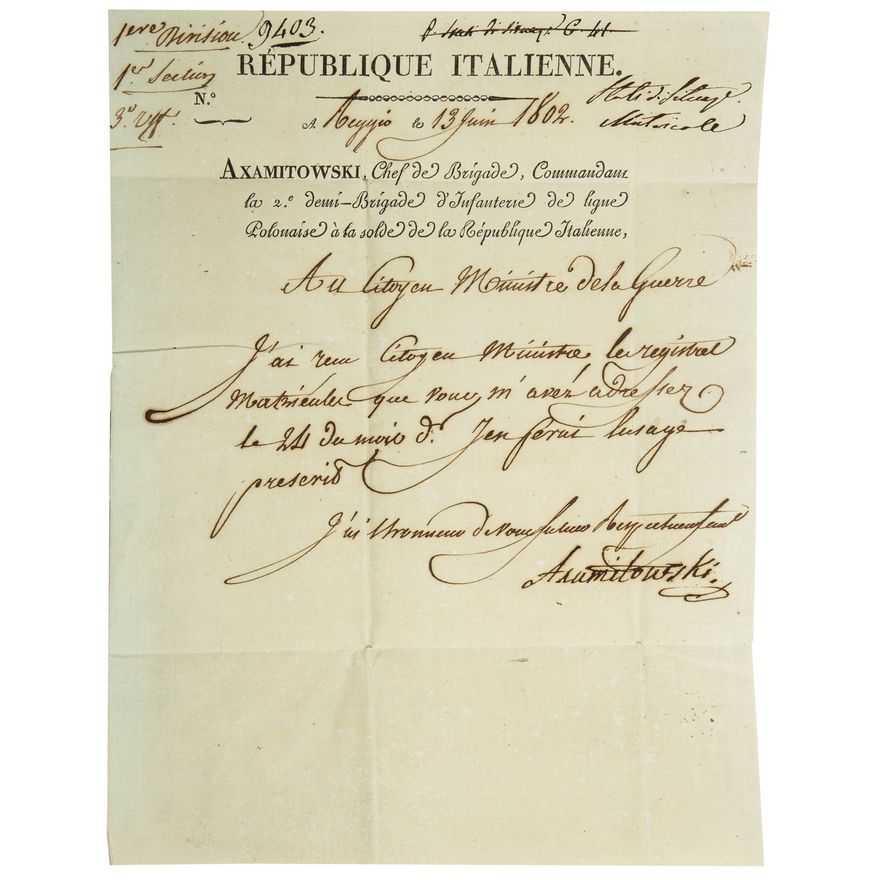 1ere Division 9403.
1er Section
3e
RÉPUBLIQUE ITALIENNE.
N.º
Matricole
A Reggio le 13 Juin 1802.
AXAMITOWSKI, Chef de Brigade, Commandant
la 2.e demi-Brigade d'Infanterie de ligne
Polonaise à la solde de la République Italienne,
Au Citoyen Ministre de la Guerre
J'ai recu Citoyen Ministre le registrel
Matricules que vous m'avez adresser
le 24 du mois d. Jen ferai lusage
prescrit
J'ai lhonneur de vous saluer Respectueusement
Axamitowski.